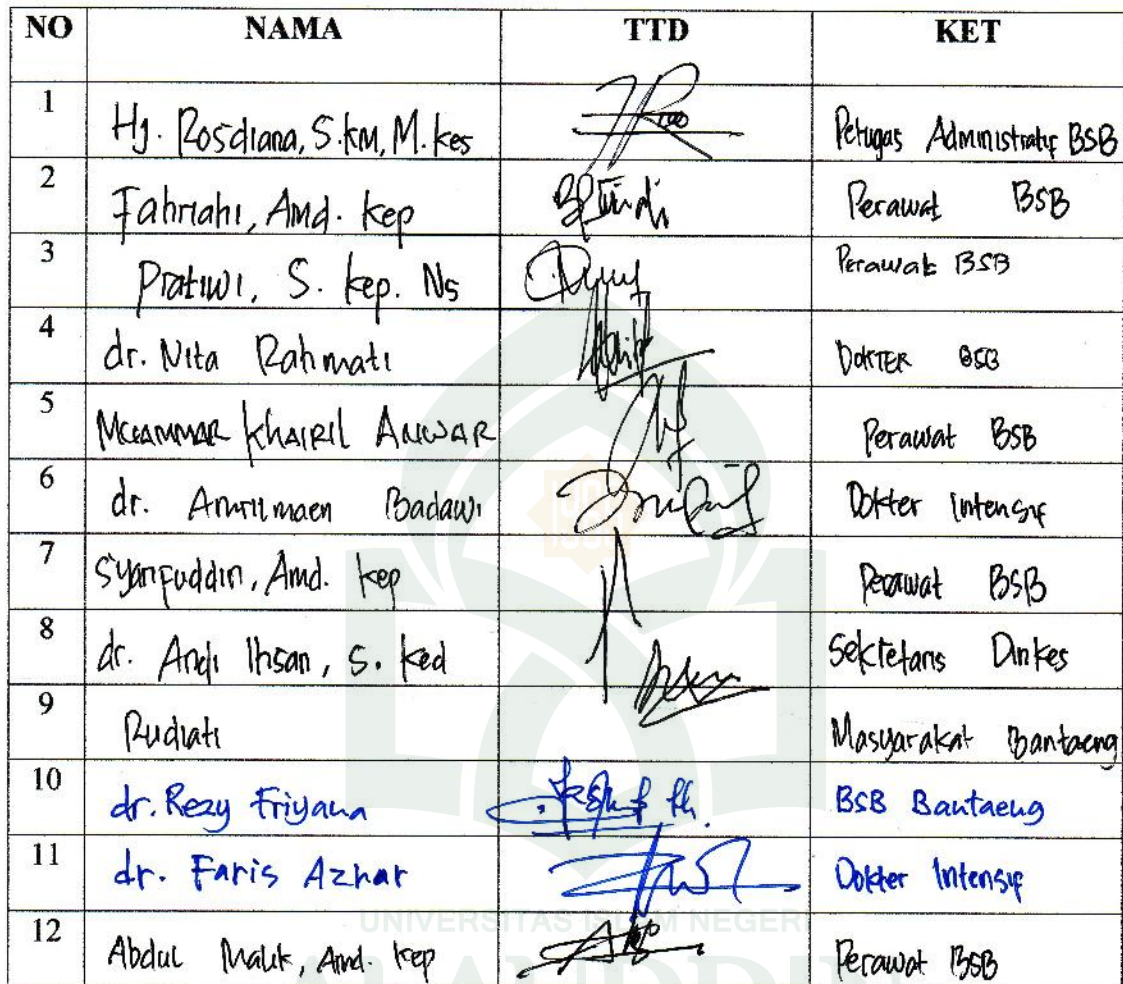 NO NAMA TTD KET
1 Hj. Rosdiana, S.km, M.kes Petugas Administratif BSB
2 Fahriahi, Amd. kep Perawat BSB
3 Pratiwi, S. kep. Ns Perawat BSB
4 dr. Nita Rahmati DOKTER BSB
5 MUAMMAR KHAIRIL ANWAR Perawat BSB
6 dr. Amrilmaen Badawi Dokter Intensif
7 Syarifuddin, Amd. kep Perawat BSB
8 dr. Andi Ihsan, S. ked Sekretaris Dinkes
9 Rudiati Masyarakat Bantaeng
10 dr. Rezy Friyana BSB Bantaeng
11 dr. Faris Azhar Dokter Intensif
UNIVERSITAS ISLAM NEGERI
12 Abdul Malik, Amd. kep Perawat BSB